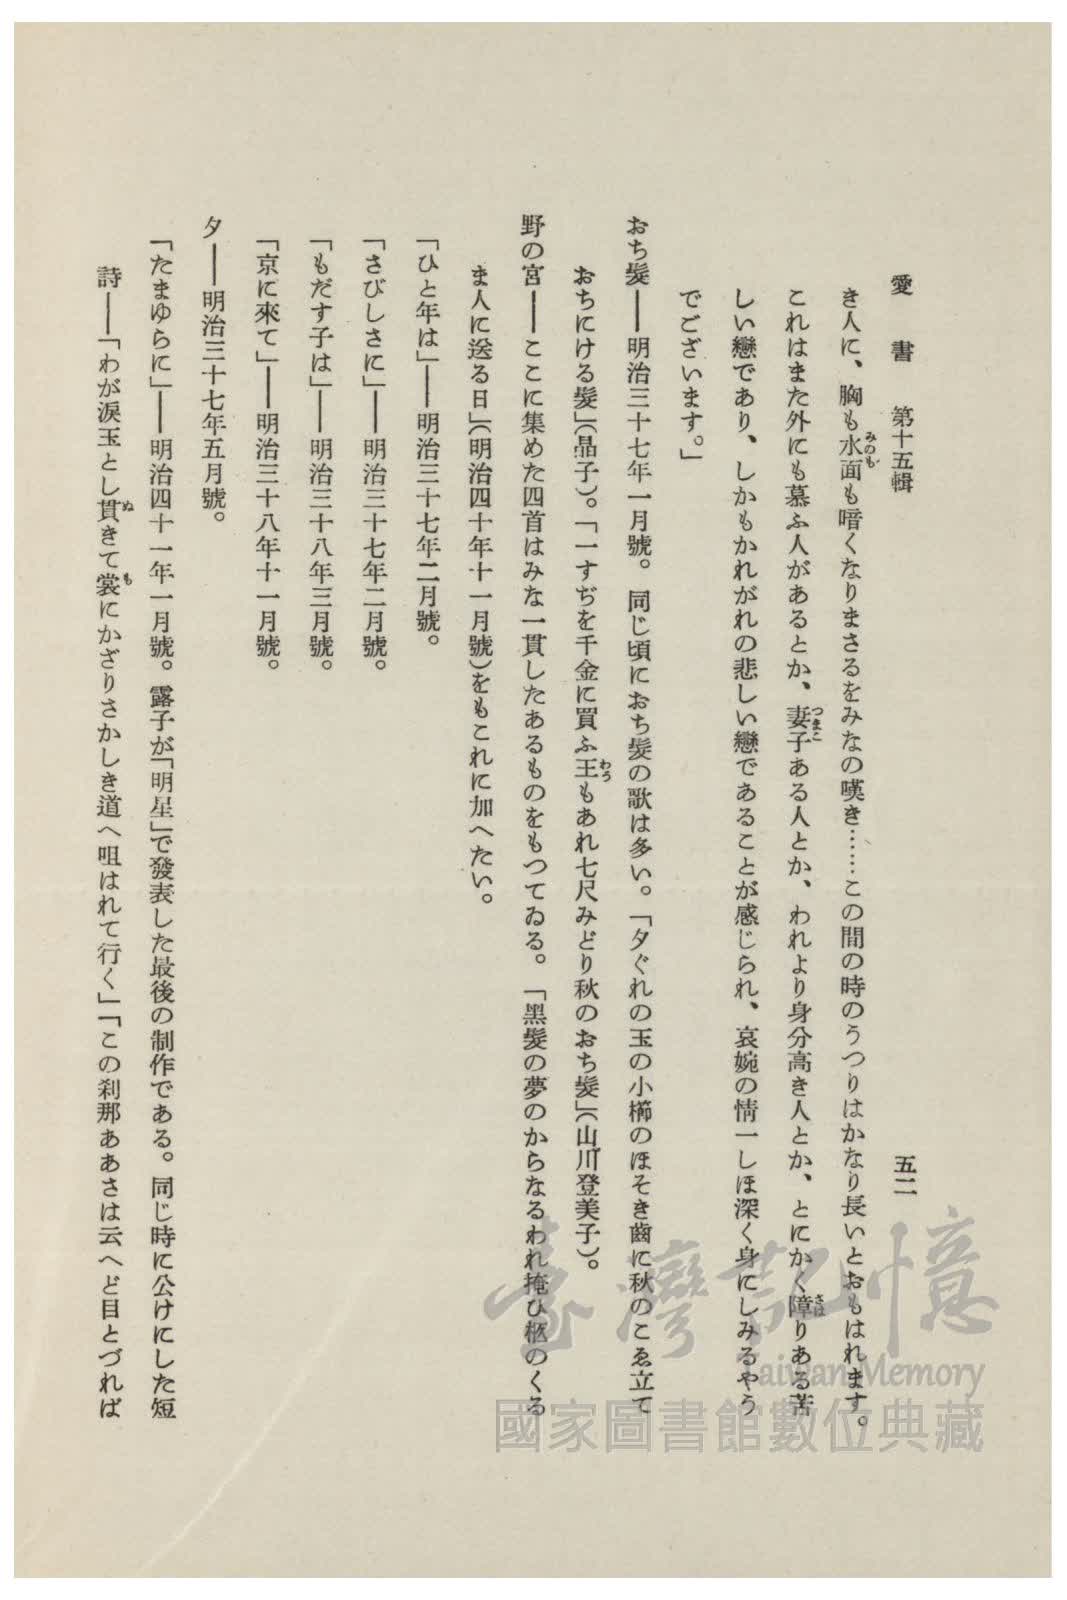 愛書 第十五輯 五二
き人に、胸も水面も暗くなりまさるをみなの嘆き……この間の時のうつりはかなり長いとおもはれます。
みのも
これはまた外にも慕ふ人があるとか、妻子ある人とか、われより身分高き人とか、とにかく障りある苦
つまこ
さは
しい戀であり、しかもかれがれの悲しい戀であることが感じられ、哀婉の情一しほ深く身にしみるやう
でございます。」
おち髮――明治三十七年一月號。同じ頃におち髮の歌は多い。「夕ぐれの玉の小櫛のほそき齒に秋のこゑ立て
おちにける髮」(晶子)。「一すぢを千金に買ふ王もあれ七尺みどり秋のおち髮」(山川登美子)。
わう
野の宮――ここに集めた四首はみな一貫したあるものをもつてゐる。「黑髮の夢のからなるわれ掩ひ柩のくる
ま人に送る日」(明治四十年十一月號)をもこれに加へたい。
「ひと年は」――明治三十七年二月號。
「さびしさに」――明治三十七年二月號。
「もだす子は」――明治三十八年三月號。
「京に來て」――明治三十八年十一月號。
夕――明治三十七年五月號。
「たまゆらに」――明治四十一年一月號。露子が「明星」で發表した最後の制作である。同じ時に公けにした短
詩――「わが淚玉とし貫きて裳にかざりさかしき道へ咀はれて行く」「この刹那ああさは云へど目とづれば
ぬ
も
臺灣記憶
Taiwan Memory
國家圖書館數位典藏